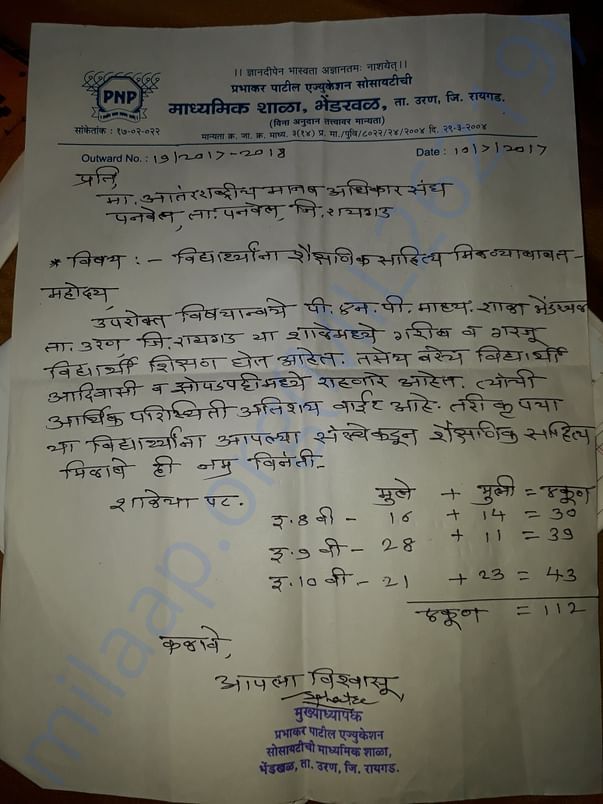 ।। ज्ञानदीपेन भास्वता अज्ञानतमः नाशयेत्।।
प्रभाकर पाटील एज्युकेशन सोसायटीची
PNP
माध्यमिक शाळा, भेंडखळ, ता. उरण, जि. रायगड.
(विना अनुदान तत्वावर मान्यता)
सांकेतांक : १७-०२-०२२
मान्यता क्र. जा. क्र. माध्य. ३(१४) प्र. मा./पुवि/८०२२/२४/२००४ दि. २९-३-२००४
Outward No. : 19/2017-2018
Date : 10/7/2017
प्रति,
मा. आतंरराष्ट्रीय मानव अधिकार संघ
पनवेल, ता. पनवेल, जि. रायगड
* विषय : - विद्यार्थ्यांना शैक्षणिक साहित्य मिळण्याबाबत -
महोदय
उपरोक्त विषयान्वये पी. एन. पी. माध्य. शाळा भेंडखळ
ता. उरण जि. रायगड या शाळेमध्ये गरीब व गरजू
विद्यार्थी शिक्षण घेत आहेत. तसेच विद्यार्थी
आदिवासी व झोपडपट्टीमध्ये राहणारे आहेत. त्यांची
आर्थिक परिस्थिती अतिशय वाईट आहे. तरी कृपया
या विद्यार्थ्यांना आपल्या संस्थेकडून शैक्षणिक साहित्य
मिळावे ही नम्र विनंती.
शाळेचा पट.
मुले + मुली = एकूण
इ. 8 वी - 16 + 14 = 30
इ. 9 वी - 28 + 11 = 39
इ. 10 वी - 21 + 23 = 43
एकूण = 112
कळावे,
आपला विश्वासू
मुख्याध्यापक
प्रभाकर पाटील एज्युकेशन
सोसायटीची माध्यमिक शाळा,
भेंडखळ, ता. उरण, जि. रायगड.
milaap.org